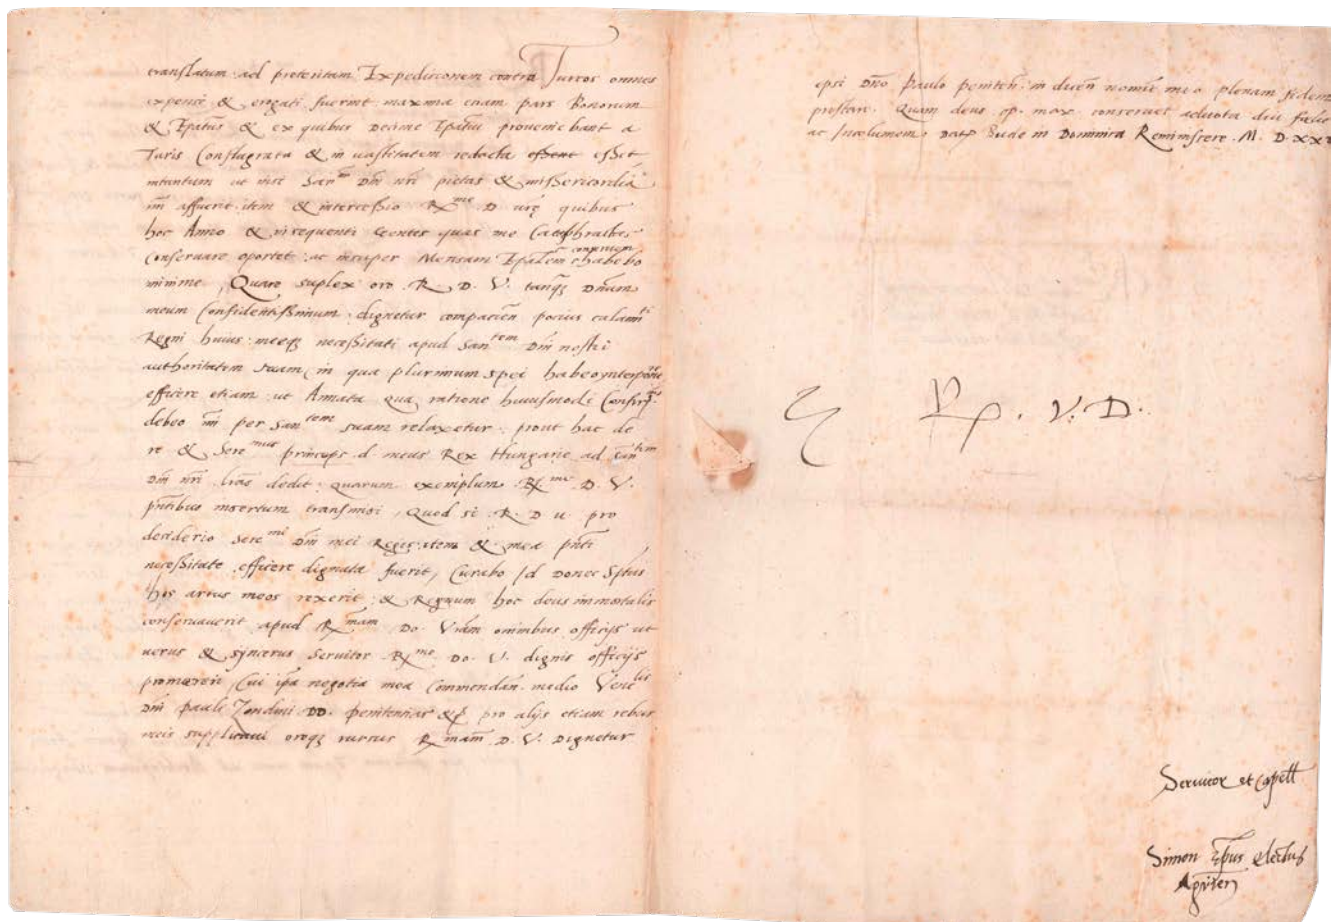 translatum ad preteritam Expedicionem contra Turcos omnes
expense & erogati fuerint maxima etiam pars Bonorum
& Epatus & ex quibus Decime Epatui proveniebant a
Turcis Conflagrata & in vastitatem redacta essent esset
intantum ut nisi San D\u0304ni n\u0304ri pietas & misericordia
m\u0304 affuerit item & intercessio Rme D vrę quibus
hoc Anno & insequenti Gentes quas me
Conservare oportet ac insuper Mensam habebo
minime, Quare suplex oro R. D. V. tanqȝ Dn\u0304um
meum Confidentissimum dignetur pocius calamti
Regni huius meeqȝ necessitati apud Santem D\u0304ni nostri
authoritatem suam, in qua plurimum spei habeo
efficere etiam ut Annata qua ratione huiusmodi
debeo m\u0304 per Santem suam relaxetur prout hac de
re & Seremus princeps d meus Rex Hungarie ad
D\u0304ni n\u0304ri l\u0304ras dedit quarum exemplum Rme D. V.
pn\u0304tibus insertum transmisi, Quod si R. D u pro
desiderio Seremi D\u0304ni mei & mea pn\u0304ti
necessitate efficere dignata fuerit, Curabo Id Donec Sp\u0304tus
hos artus meos rexerit & Regnum hoc deus immortalis
conservaverit apud Rmam Do. omnibus officijs ut
verus & syncerus Servitor Rme Do. V. dignis officijs
promereri, Cui ip\u0304a negotia mea medio Venelis
D\u0304ni Pauli Zondini DD. pro alijs etiam rebus
meis supplicavi oroqȝ rursus Rmam\u0304 D. V. Dignetur
epsi Dn\u0304o Paulo in nomie meo plenam fidem
prestare. Quam deus op. max. conservet ad vota diu
ac Incolumem. Bude in Dominica Reminiscere. M. D. XX
E R. V. D.
Servitor et Capell
Simon Ep\u0304us electus